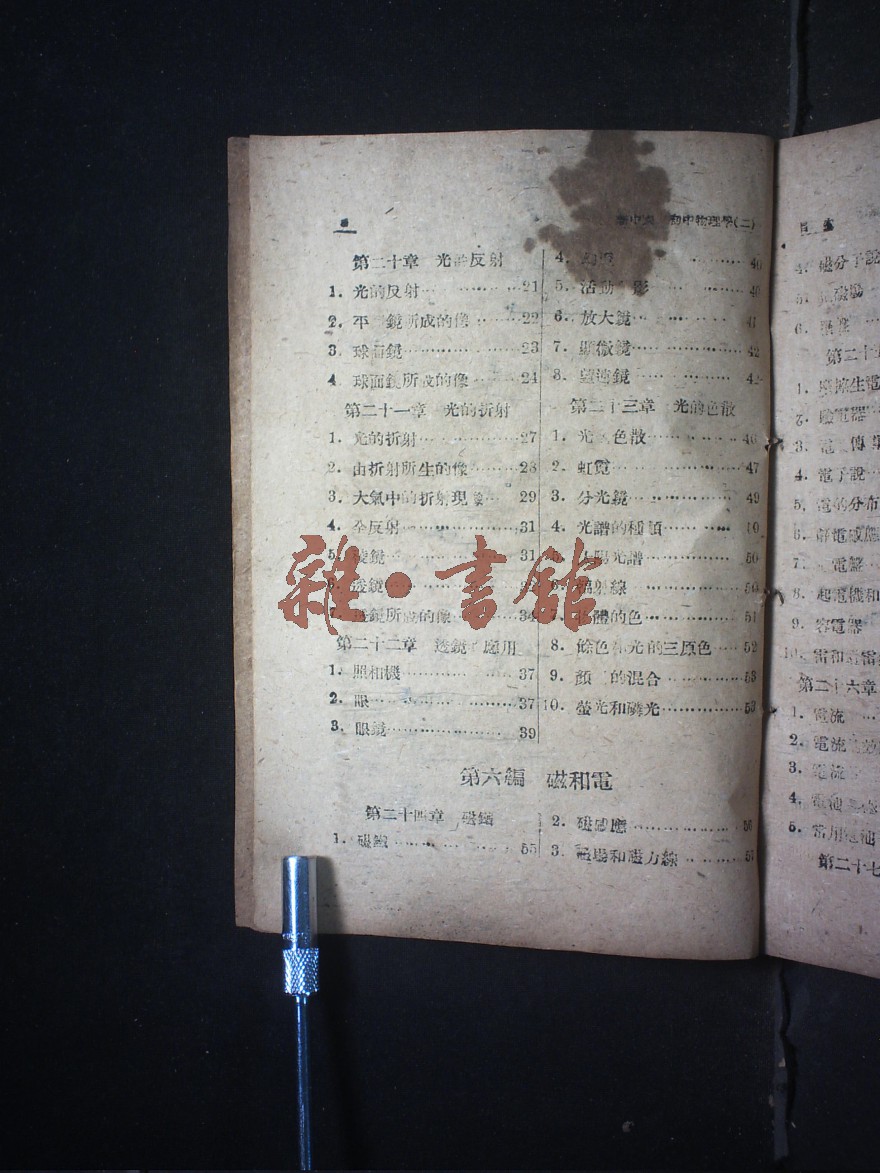 初中物理學(二)
第二十章 光的反射
1. 光的反射 21
2. 平鏡所成的像 22
3. 球面鏡 23
4. 球面鏡所成的像 24
第二十一章 光的折射
1. 光的折射 27
2. 由折射所生的像 28
3. 大氣中的折射現象 29
4. 全反射 31
5. 稜鏡 31
6. 透鏡
7. 透鏡所成的像 34
第二十二章 透鏡 應用
1. 照相機 37
2. 眼 37
3. 眼鏡 39
4. 40
5. 活動 影
6. 放大鏡
7. 顯微鏡 42
8. 望遠鏡
第二十三章 光的色散
1. 光 色散 46
2. 虹霓 47
3. 分光鏡 49
4. 光譜的種類
5. 陽光譜 50
6. 輻射線 50
7. 體的色 51
8. 餘色 光的三原色 52
9. 顏 的混合 53
10. 螢光和磷光 53
第六編 磁和電
第二十四章 磁鐵
1. 磁鐵 55
2. 磁感應 56
3. 磁場和磁力線 57
雜·書館
目
4. 磁分子說
磁場
6.
第二十五
1. 摩擦生電
2. 驗電器
3. 電 傳
4. 電子說
5. 電的分布
6. 靜電感應
7. 電盤
8. 起電機和
9. 容電器
10. 雷和避雷
第二十六章
1. 電流
2. 電流 效
3. 電流
4. 電池
5. 常用電池
第二十七